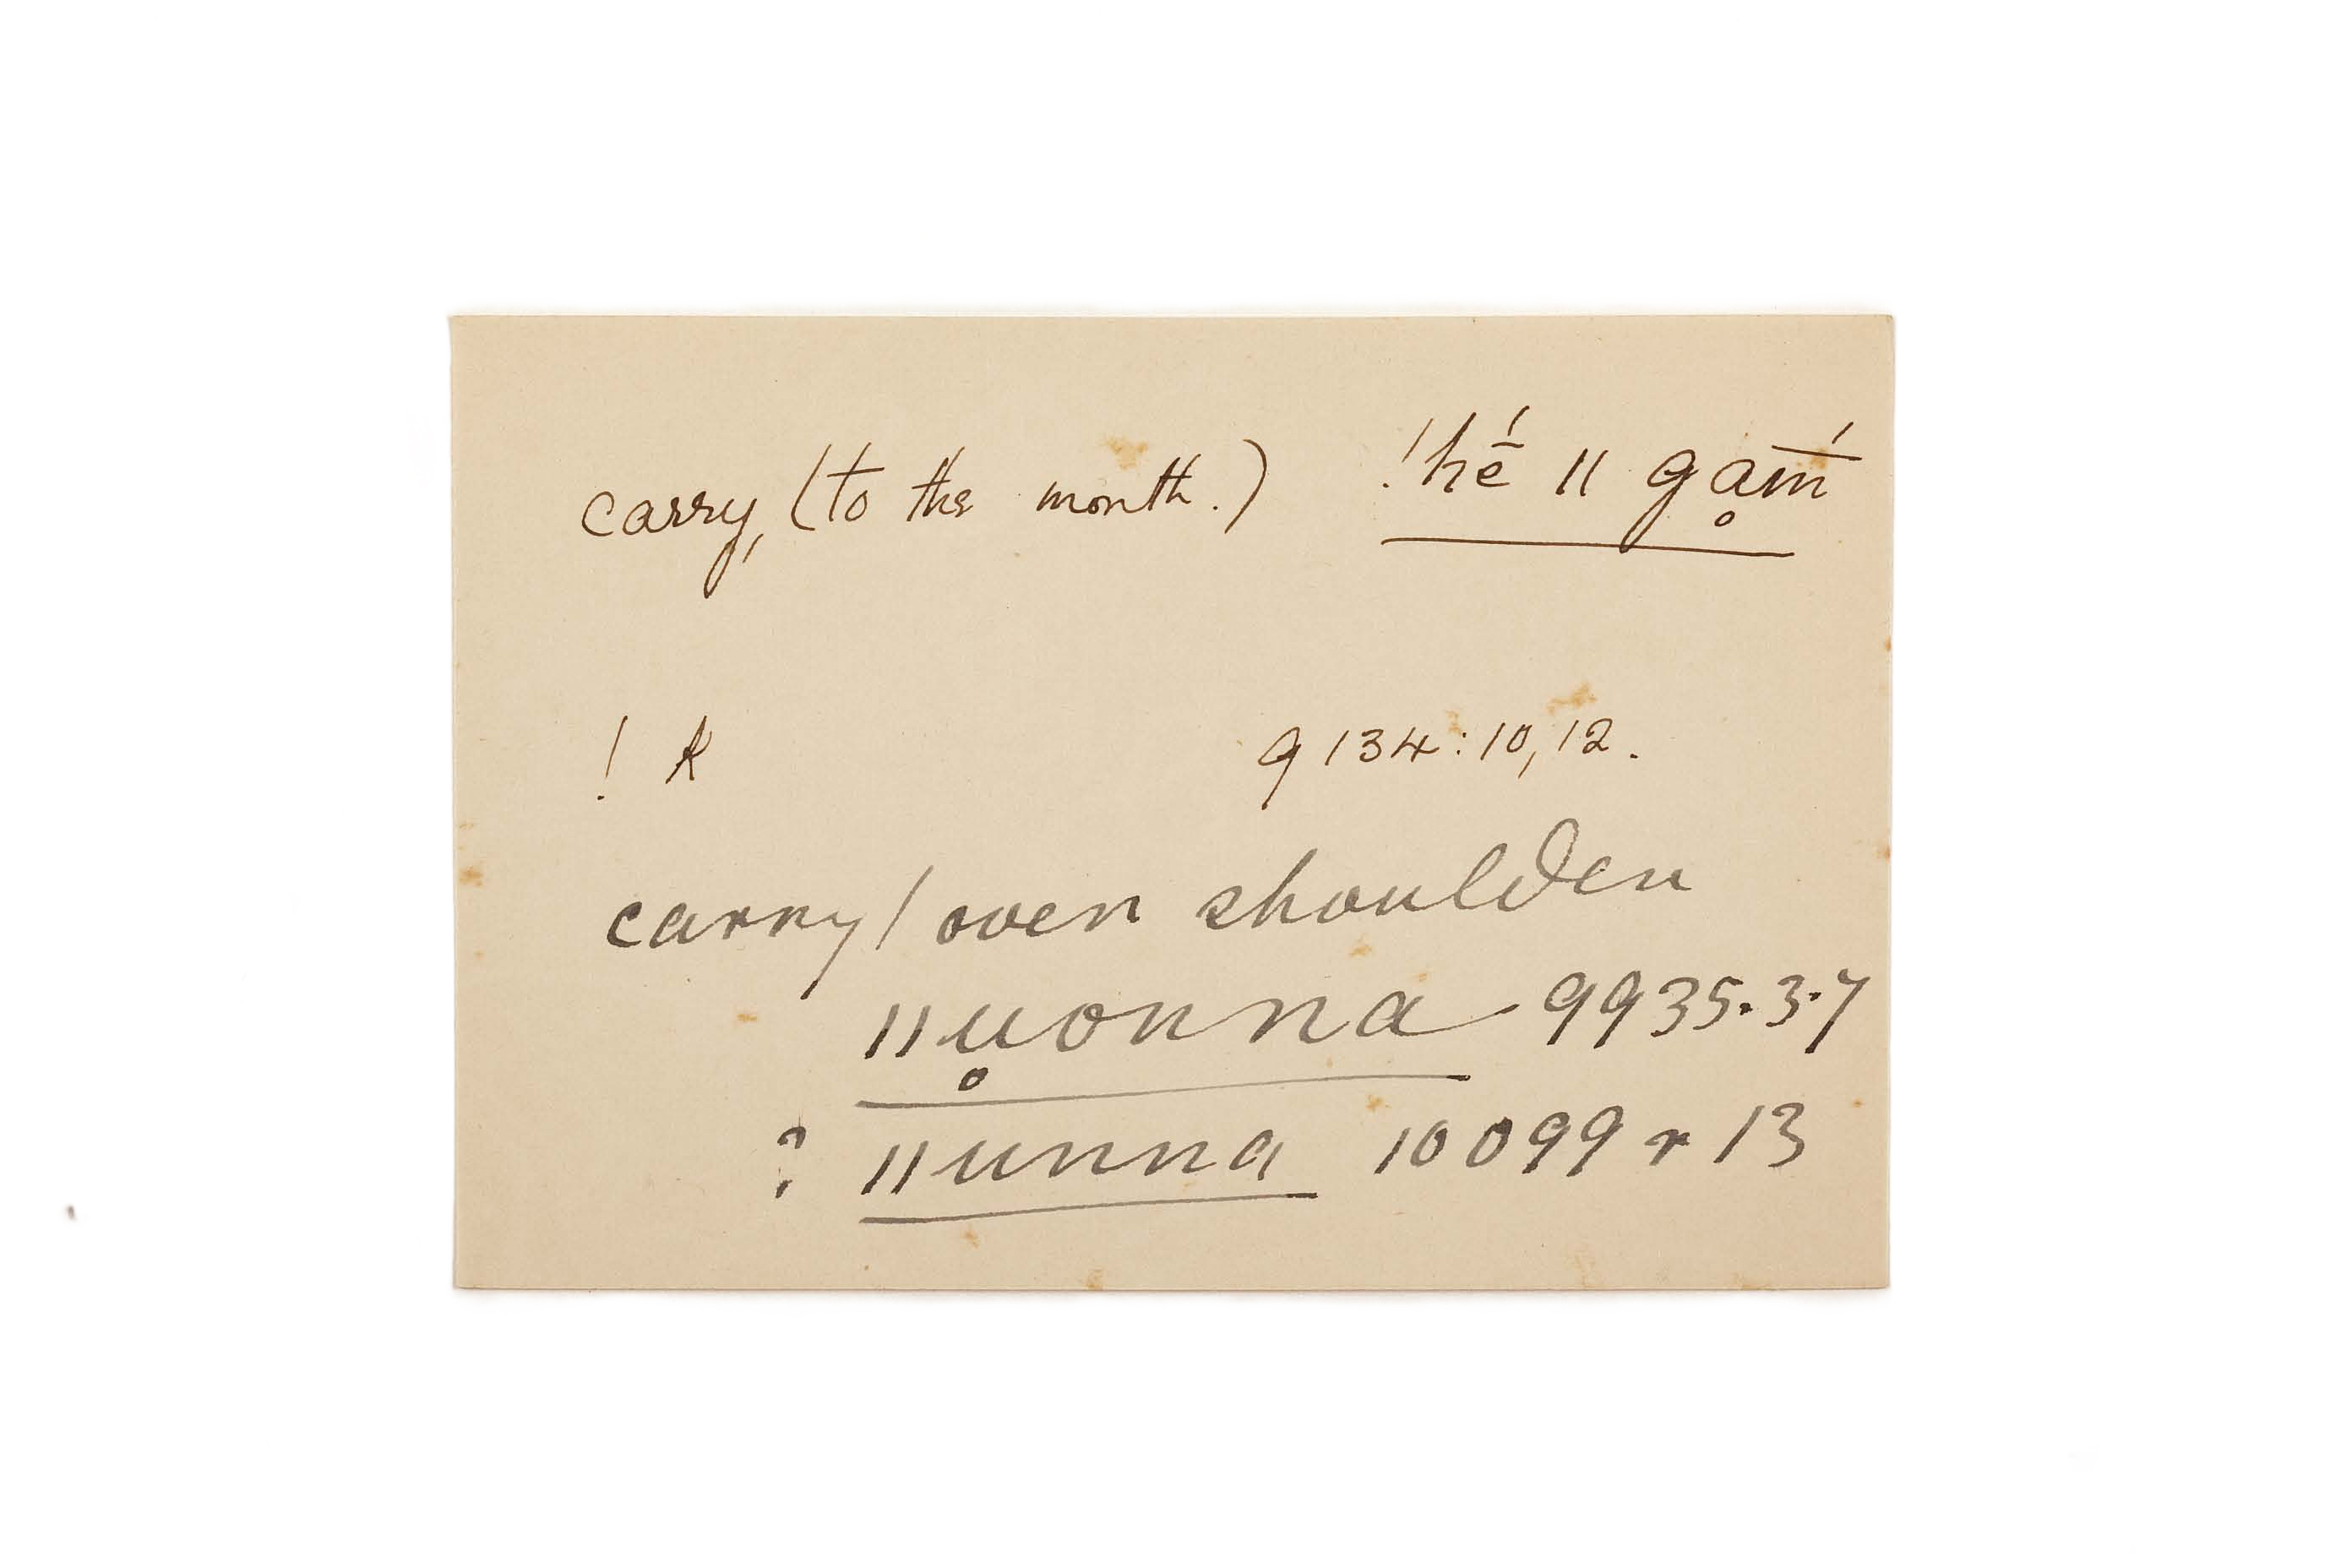 carry, (to the month.) !hé̱ ǁ gạm̄́
! k 9134:10,12.
carry / over shoulder
ǁu̥onna 9935.3.7
? ǁunna 10099 r 13